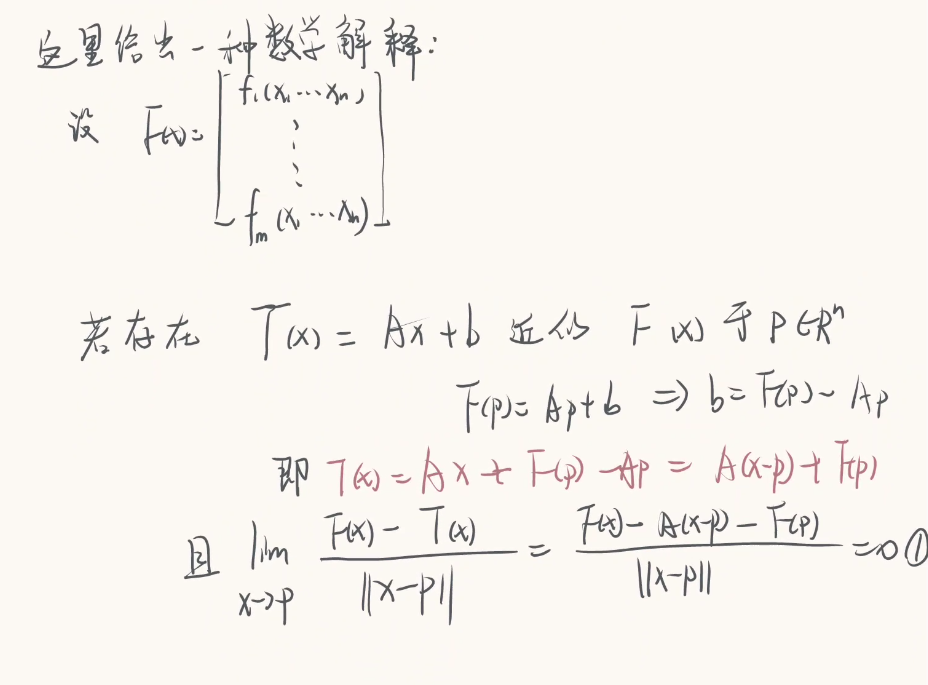 这里给出一种数学解释:
设 F(x)= [ f₁(x₁…xₙ)
⋮
fₘ(x₁…xₙ) ]
若存在 T(x) = Ax+b 近似 F(x) 于 p∈Rⁿ
F(p)= Ap+b ⇒ b= F(p)- Ap
即 T(x) = Ax + F(p) -Ap = A(x-p)+ F(p)
且 lim x→p (F(x) - T(x)) / ||x-p|| = (F(x)- A(x-p) - F(p)) / ||x-p|| =0 ①